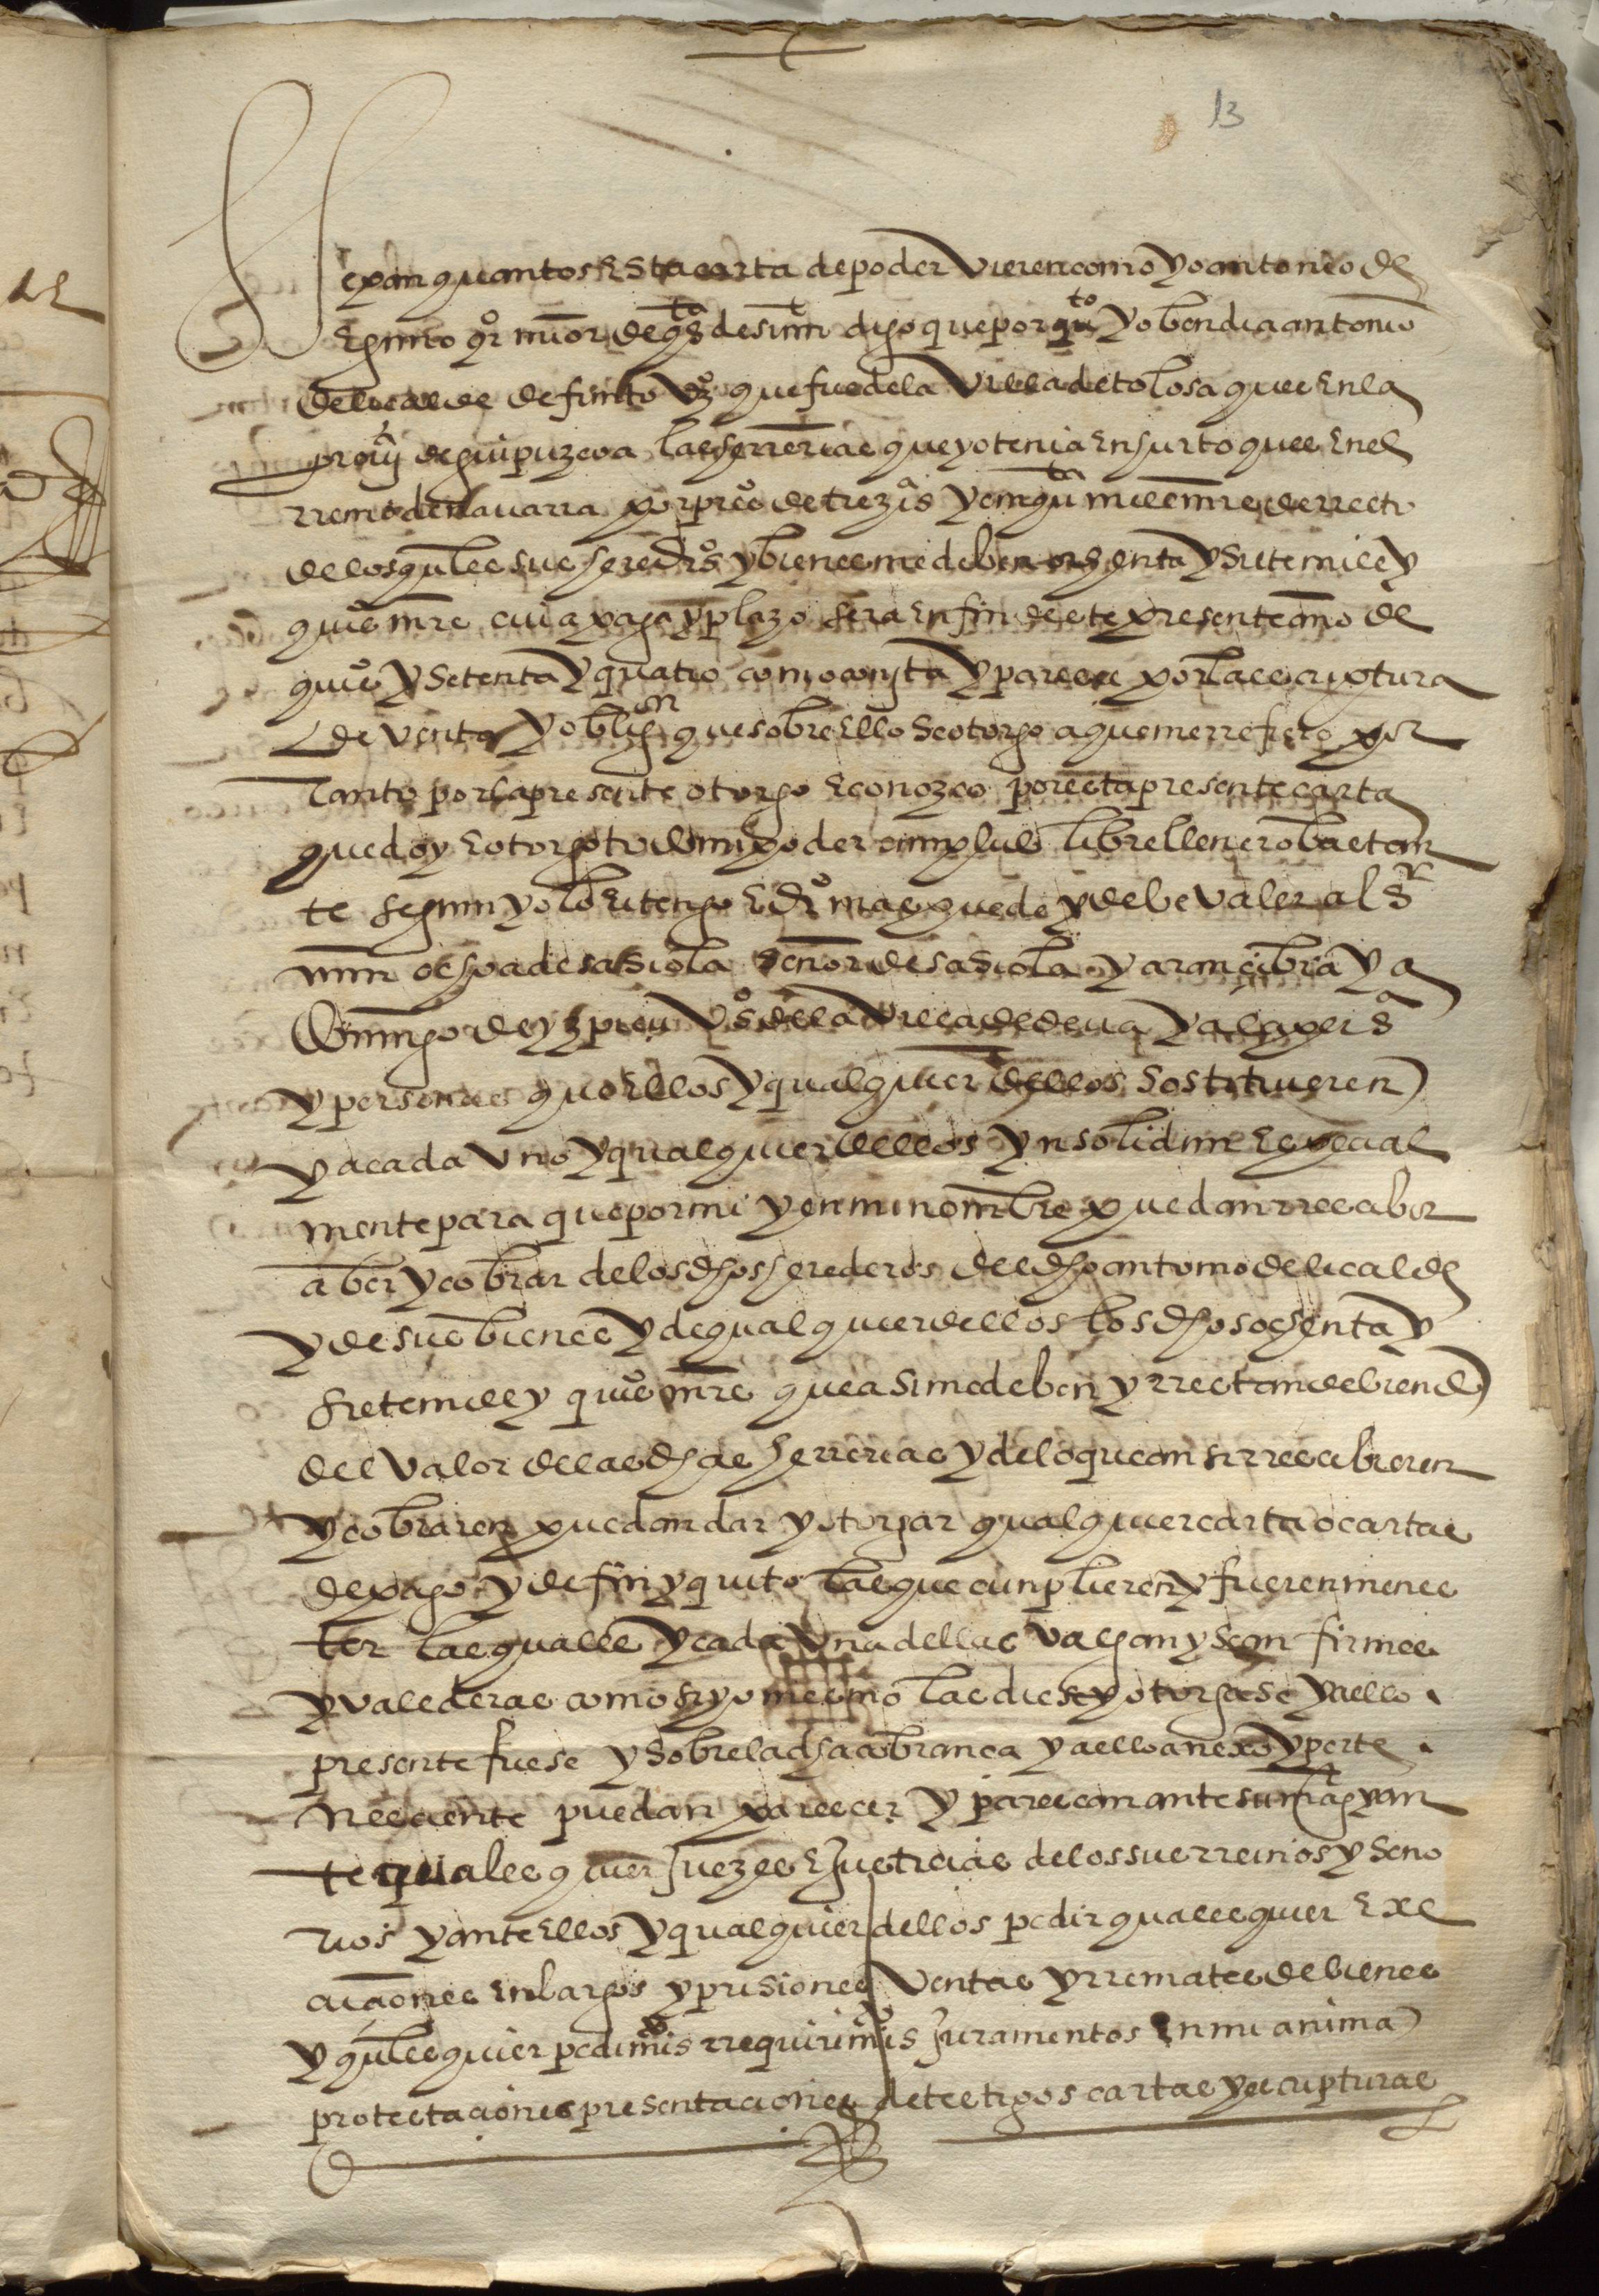 13
Sepan quantos esta carta de poder vieren como yo antonio de
eguino qr. mor. de qtas de su mt digo que por quto yo bendi a antonio
de licalde defunto vzo que fue de la villa de tolosa que es en la
prouja de guipuzcoa las herrerias que yo tenia en que es en el
rreino de nauarra por preo de trezos y cinqta mill mrs de rresto
de los qules sus herederos y bienes me deben ochenta y siete mill y
quios mrs cuia paga y plazo sera en fin deste presente ano de
quios y setenta y quatro como consta y parece por la escriptura
de venta y obligon que sobre ello se otorgo a que me rrefiero por
tanto por la presente otorgo e conozco por esta presente carta
que doy e otorgo todo mi poder cumplido libre llenero bastan
te segun yo lo e tengo e de dro mas puede y debe valer al sr
mjn ochoa de sasiola señor de sasiola y arançibia y a
domingo de yzpicu vo de la villa de deua y a la persa
y personas que ellos y qualquier dellos sostituyeren
y a cada vno y qualquier dellos ynsolidun especial
mente para que por mi y en mi nombre puedan rrecabir
aber y cobrar de los dhos herederos del dho antonio de licalde
y de sus bienes y de qualquier dellos los dhos ochenta y
siete mill y quios mrs que asi me deben y rrestan debiendo
del valor de las dhas herrerias y de lo que ansi rrecibieren
y cobraren puedan dar y otorgar qualquier carta o cartas
de pago y de fin y quito las que cunplieren y fueren menes
ter las quales y cada vna dellas valgan y sean firmes
y valederas como si yo mesmo las diese y otorgase y a ello
presente fuese y sobre la dha cobranca y a ello anexo y perte
neciente puedan parecer y parezcan ante su magd y an
te qualesquier juezes e justicias de los sus rreinos y seno
rios y ante ellos y qualquier dellos pedir qualesquier exe
cuciones enbargos y prisiones ventas y rremates de bienes
y qulesquier pedimtos rrequirimtos juramentos en mi anima
protestaciones presentaciones de testigos cartas y escripturas